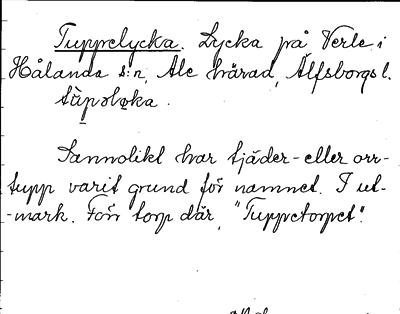 Tuppelycka. Lycka på Verle i
Hålanda s:n, Ale härad, Älfsborgs l.
Sannolikt har tjäder- eller orr-
tupp varit grund för namnet. I ut-
-mark. Förr torp där, "Tuppetorpet".